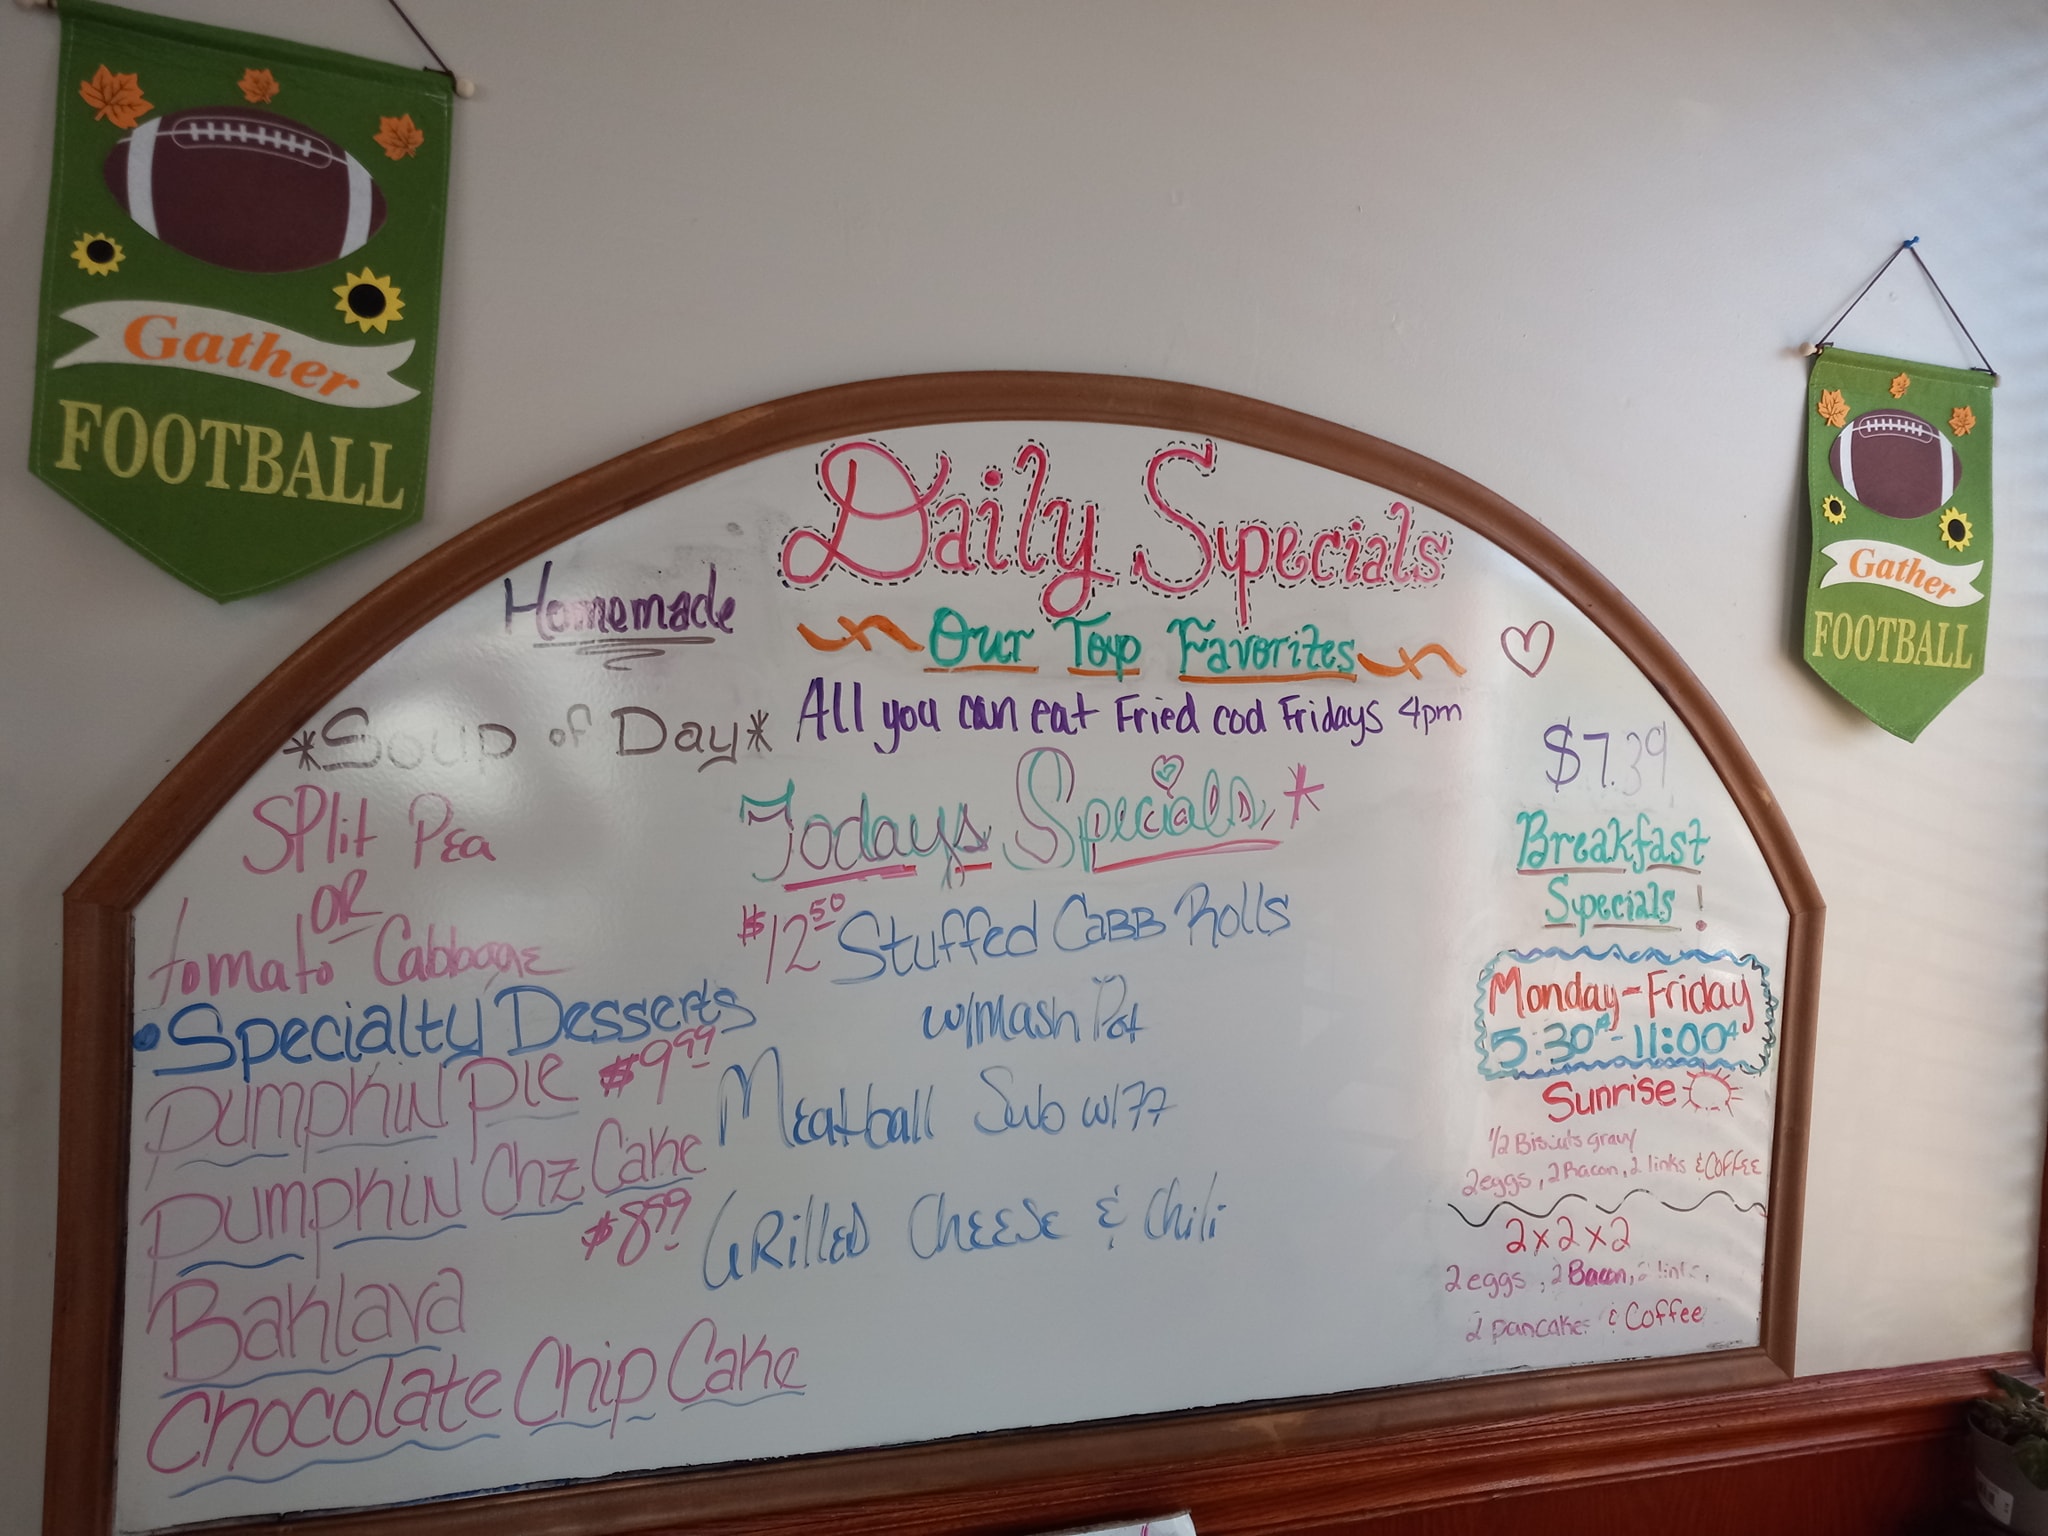 Gather
FOOTBALL
Gather
FOOTBALL
Daily Specials
Our Top Favorites
All you can eat Fried cod Fridays 4pm
Homemade
*Soup of Day*
Split Pea
OR
tomato Cabbage
• Specialty Desserts
Pumpkin Pie $9.99
Pumpkin Chz Cake
$8.99
Baklava
Chocolate Chip Cake
Todays Specials, *
$12.50 Stuffed CABB Rolls
w/ mash Pot
Meatball Sub w/ FF
GRilled Cheese & Chili
$7.39
Breakfast
Specials!
Monday-Friday
5:30A-11:00A
Sunrise
1/2 Biscuits gravy
2 eggs, 2 Bacon, 2 links & COFFEE
2x2x2
2 eggs, 2 Bacon, 2 links,
2 pancakes & Coffee